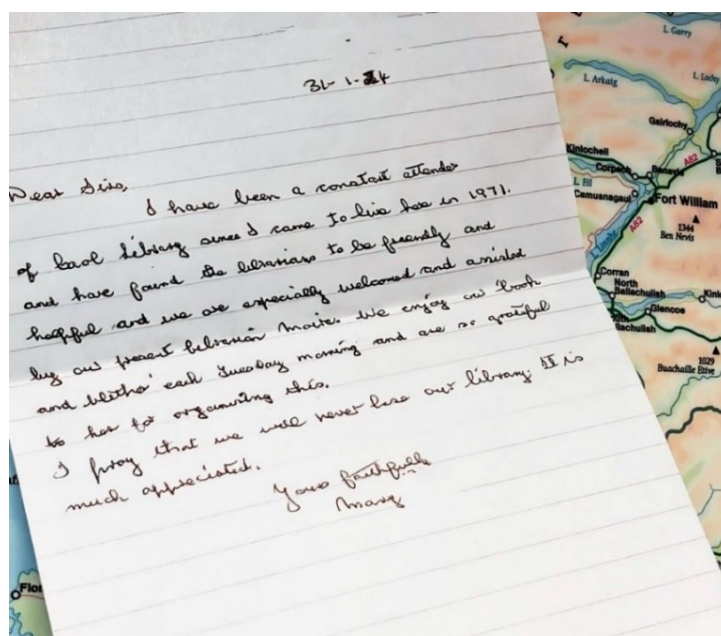 31-1-24
Dear Sirs,
I have been a constant attender
of Caol Library since I came to live here in 1971.
and have found the librarians to be friendly and
helpful and we are especially welcomed and assisted
by our present librarian Maire. We enjoy our 'book
and blether' each Tuesday morning and are so grateful
to her for organising this.
I pray that we will never lose our library. It is
much appreciated.
Yours faithfully
Mary
L. Garry
L. Arkaig
L. Lochy
Gairlochy
Kinlocheil
A82
Corpach
Banavie
L. Eil
Camusnagaul
Fort William
A82
1344
Ben Nevis
L. Linnhe
Corran
North
Ballachulish
Kinlo
Glencoe
Ballachulish
1029
Buachaille Etive
Fion